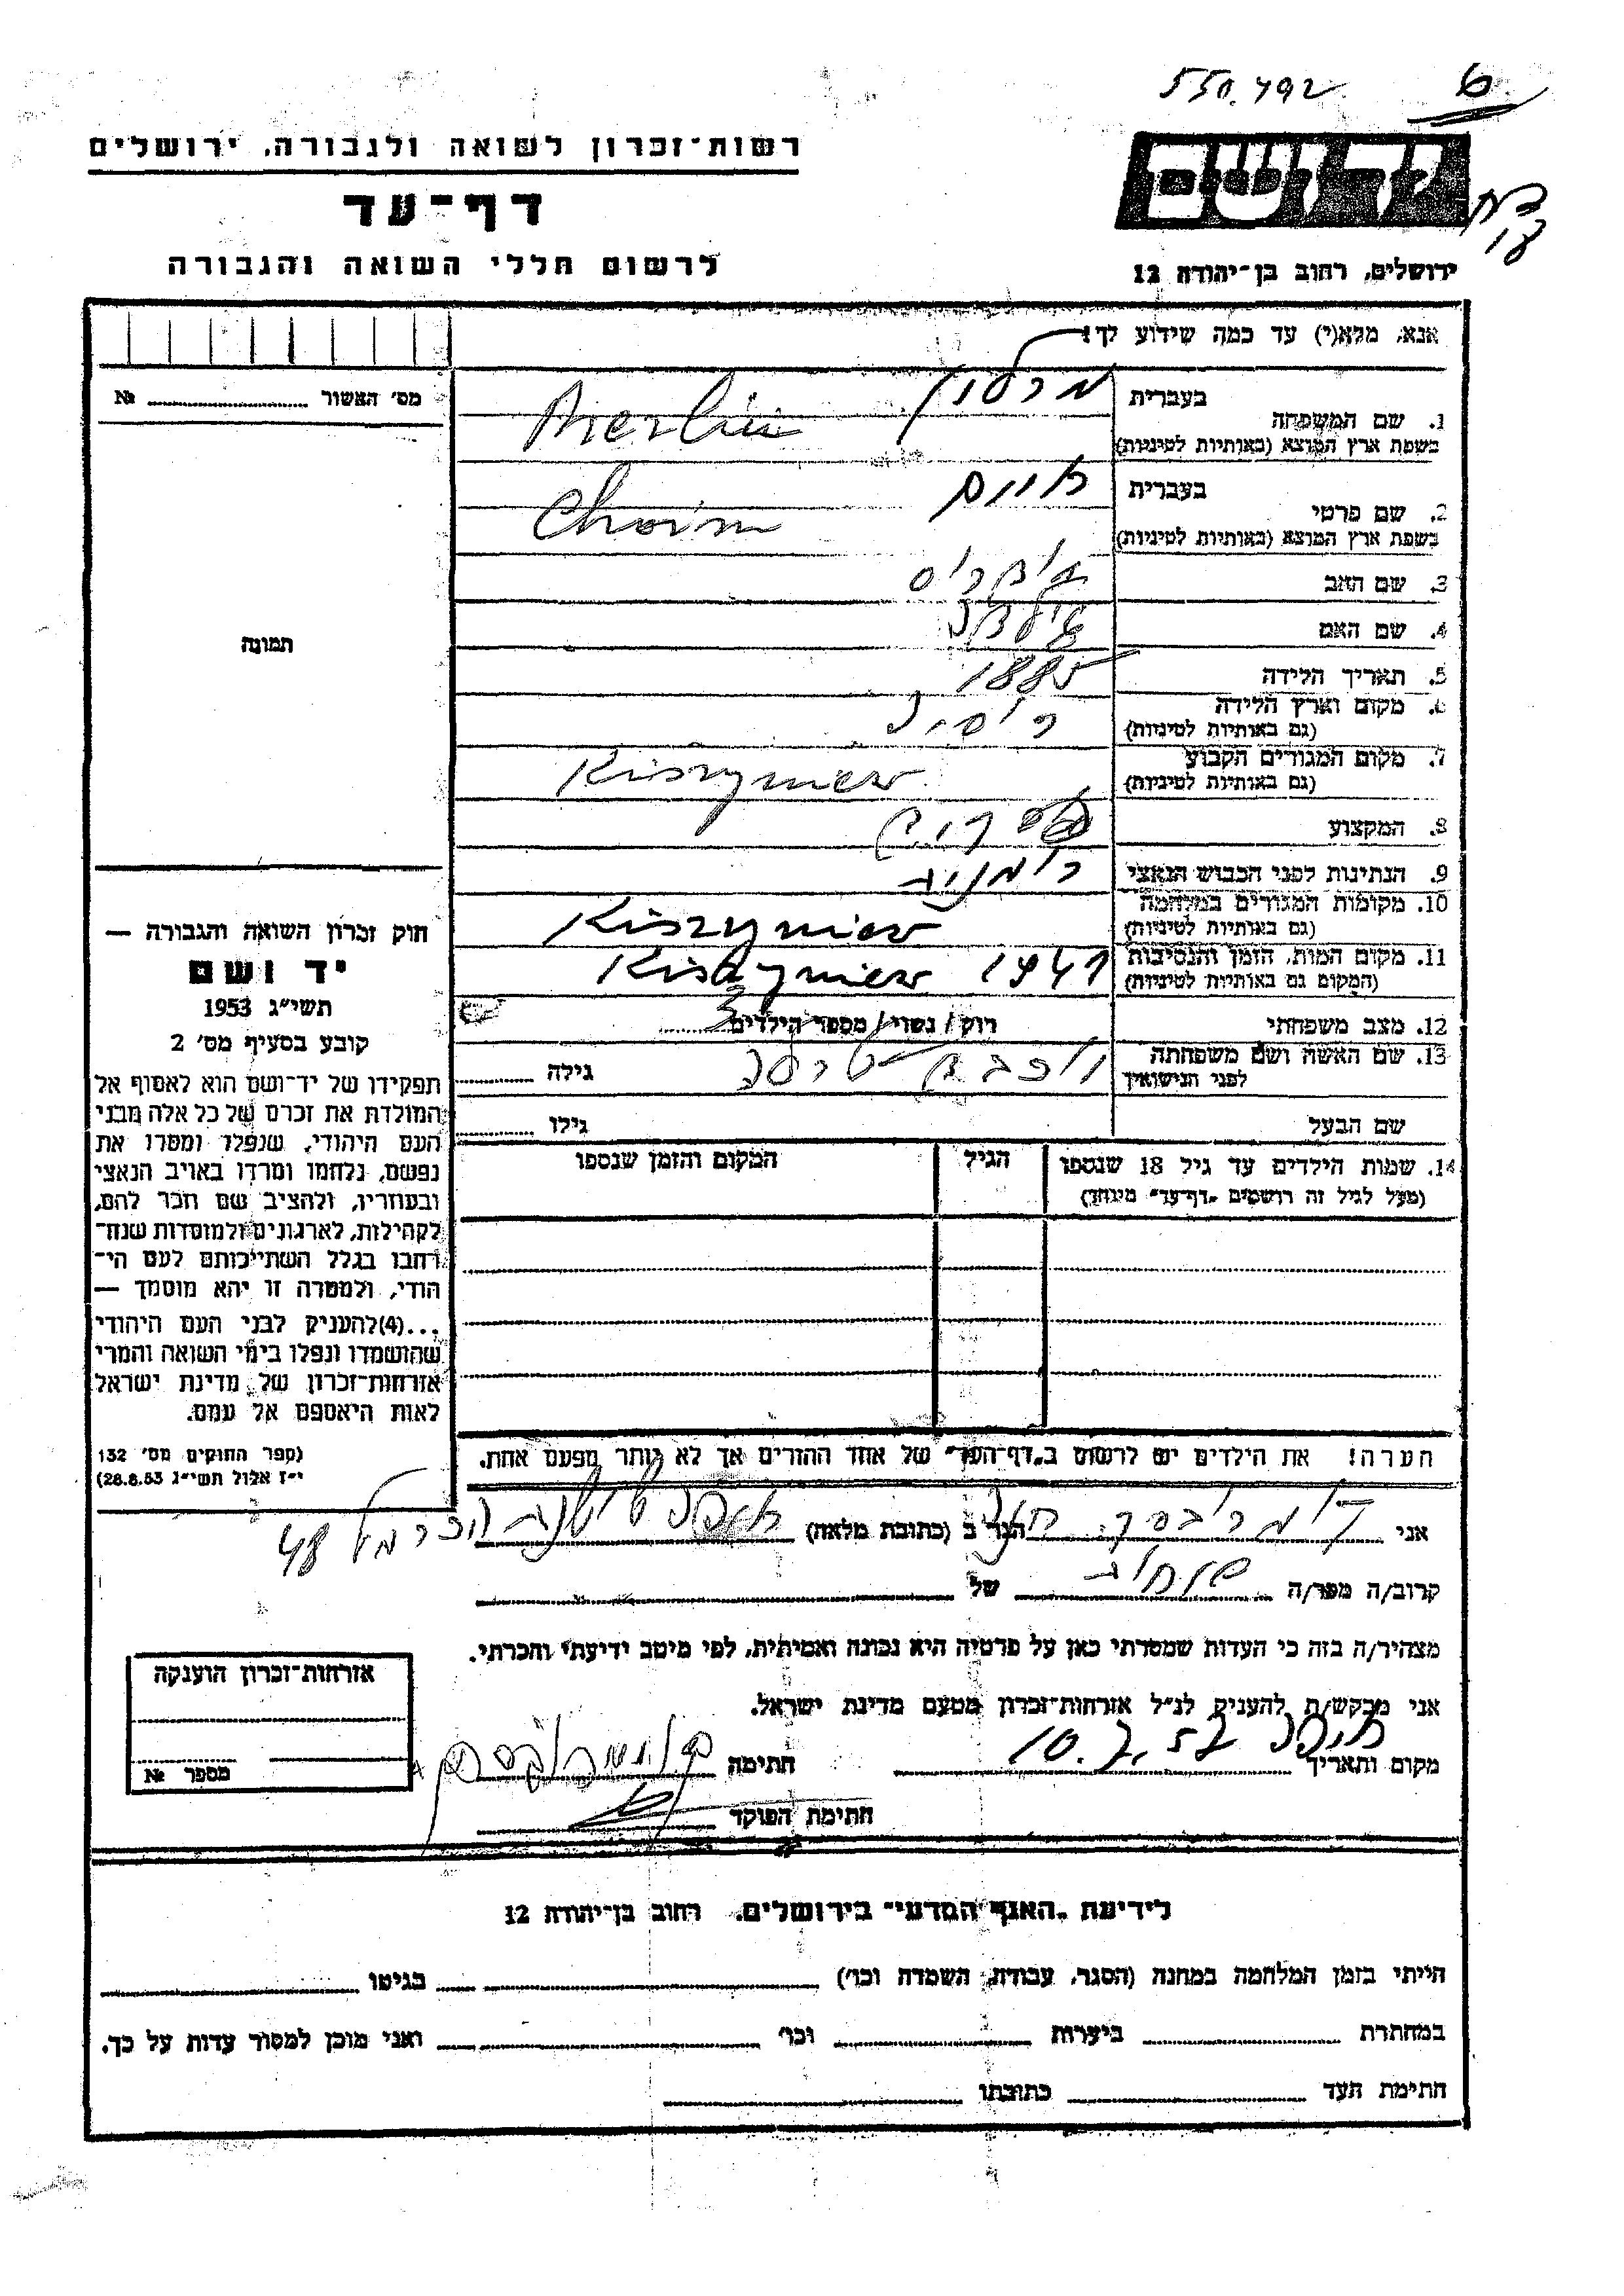 550.492
רשות־זכרון לשואה ולגבורה, ירושלים
דף־עד
לרשום חללי השואה והגבורה
יד ושם
ירושלים, רחוב בן־יהודה 12
אנא, מלא(י) עד כמה שידוע לך!
מס׳ האשור № 
תמונה
1. שם המשפחה בעברית מרלין
בשפת ארץ המוצא (באותיות לטיניות) Merlin
2. שם פרטי בעברית חיים
בשפת ארץ המוצא (באותיות לטיניות) Chaim
3. שם האב
4. שם האם
5. תאריך הלידה 1885
6. מקום וארץ הלידה רוסיה
(גם באותיות לטיניות)
7. מקום המגורים הקבוע Kiszyniew
(גם באותיות לטיניות)
8. המקצוע
9. הנתינות לפני הכבוש הנאצי רומניה
10. מקומות המגורים במלחמה Kiszyniew
(גם באותיות לטיניות)
11. מקום המות, הזמן והנסיבות Kiszyniew 1941
(המקום גם באותיות לטיניות)
12. מצב משפחתי רוק / נשוי / מספר הילדים
13. שם האשה ושם משפחתה גילה
לפני הנישואין
שם הבעל גילו
14. שמות הילדים עד גיל 18 שנספו הגיל המקום והזמן שנספו
(מעל לגיל זה רושמים „דף־עד״ מיוחד)
חוק זכרון השואה והגבורה —
יד ושם
תשי״ג 1953
קובע בסעיף מס׳ 2
תפקידו של יד־ושם הוא לאסוף אל
המולדת את זכרם של כל אלה מבני
העם היהודי, שנפלו ומסרו את
נפשם, נלחמו ומרדו באויב הנאצי
ובעוזריו, ולהציב שם וזכר להם,
לקהילות, לארגונים ולמוסדות שנח־
רבו בגלל השתייכותם לעם הי־
הודי, ולמטרה זו יהא מוסמך —
...(4)להעניק לבני העם היהודי
שהושמדו ונפלו בימי השואה והמרי
אזרחות־זכרון של מדינת ישראל
לאות היאספם אל עמם.
(ספר החוקים מס׳ 132
י״ז אלול תשי״ג 28.8.53)
הערה! את הילדים יש לרשום ב„דף־העד״ של אחד ההורים אך לא יותר מפעם אחת.
אני הגר ב (כתובת מלאה) הכרמל 48
קרוב/ה מפר/ה של
מצהיר/ה בזה כי העדות שמסרתי כאן על פרטיה היא נכונה ואמיתית, לפי מיטב ידיעתי והכרתי.
אני מבקש/ת להעניק לנ״ל אזרחות־זכרון מטעם מדינת ישראל.
מקום ותאריך חיפה חתימה
חתימת הפוקד
אזרחות־זכרון הוענקה
מספר №
לידיעת „האגף המדעי״ בירושלים, רחוב בן־יהודה 12
הייתי בזמן המלחמה במחנה (הסגר, עבודה, השמדה וכו׳) בגיטו
במחתרת ביערות וכו׳ ואני מוכן למסור עדות על כך.
חתימת העד כתובתו